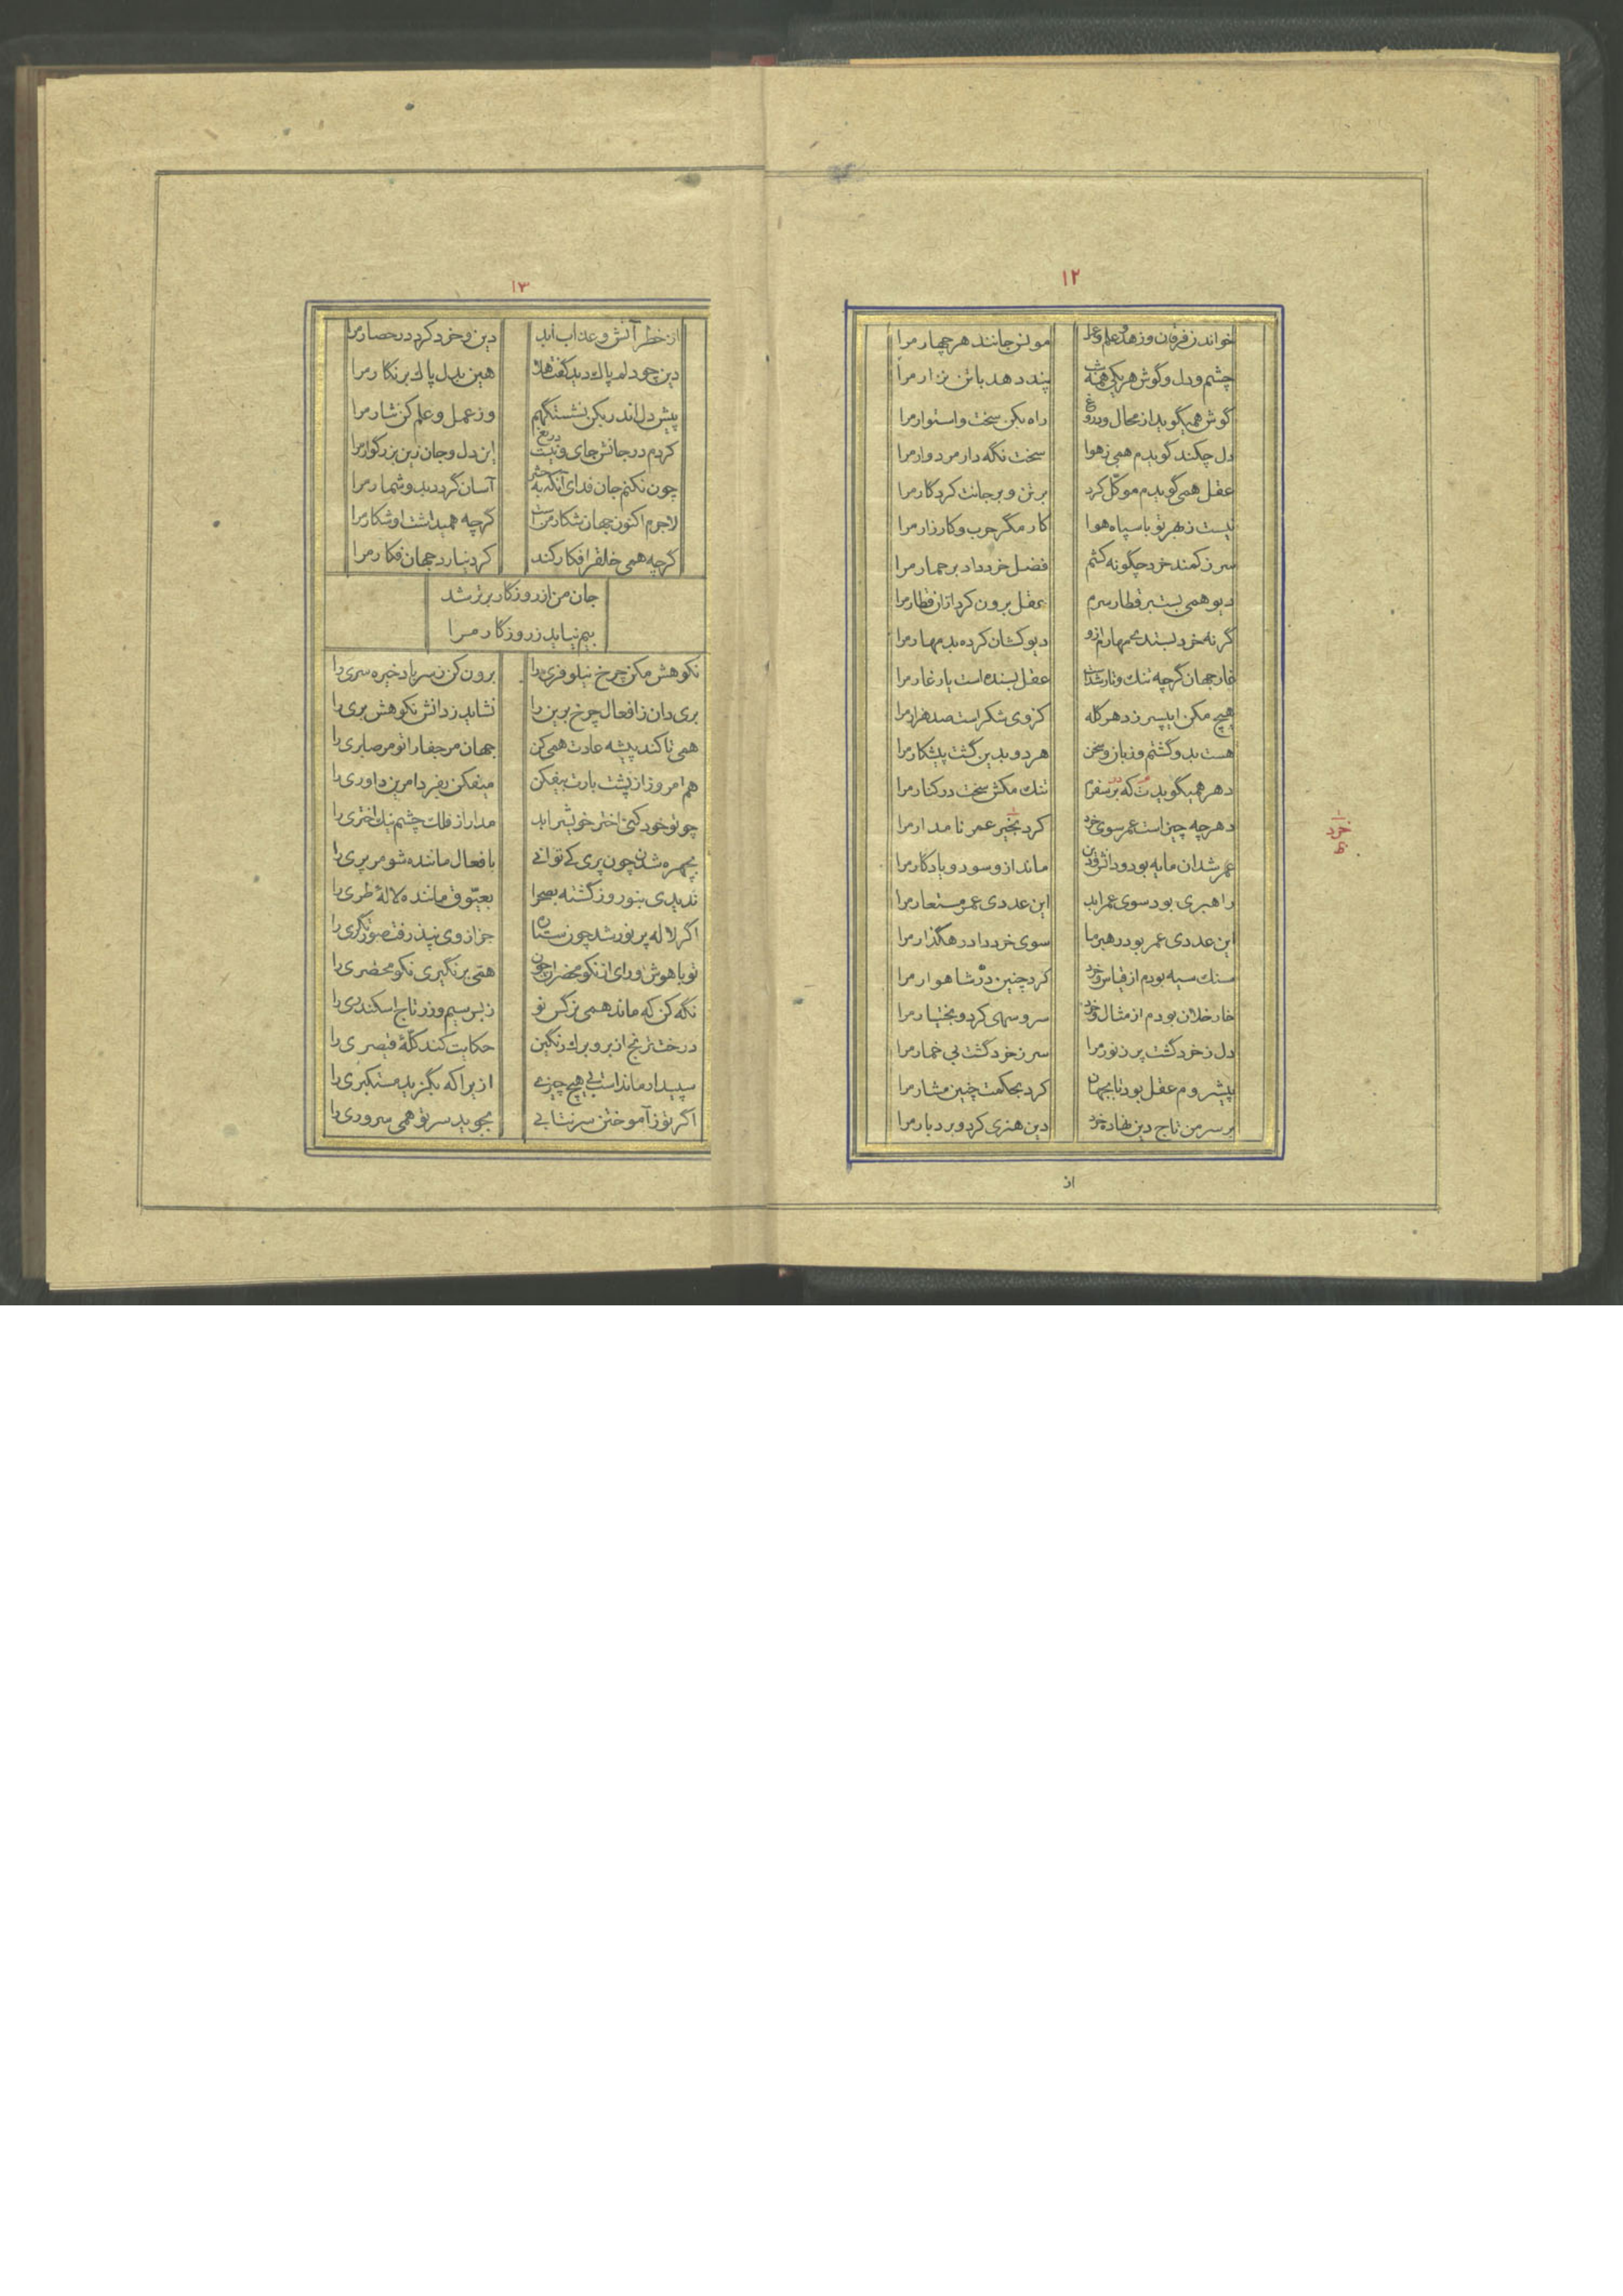 ۱۲
خواندن فرقان و زهد و علم و عمل مونس جانند هر چهار مرا
چشم و دل و گوش هر یکی همه شب پند دهد با تن نزار مرا
گوش همیگوید از محال و دروغ راه بکن سخت و استوار مرا
دل چکند گویدم همی ز هوا سخت نگه دار مردوار مرا
عقل همی گویدم موکل کرد بر تن و بر جانت کردگار مرا
نیست ز بهر تو با سپاه هوا کار مگر حرب و کارزار مرا
سر ز کمند خرد چگونه کشم فضل خرد داد بر حمار مرا
دیو همی بست بر قطار سرم عقل برون کرد ازان قطار مرا
گر نه خرد بستدی مهارم ازو دیو کشان کرده بد مهار مرا
غار جهان گرچه تنك و تار شدست عقل بسنده است یار غار مرا
هیچ مکن ایپسر ز دهر گله کز وی شکر است صد هزار مرا
هست بدو گشتم و زبان و سخن هر دو بدین گشت پیشکار مرا
دهر همیگویدت که بر سفرم تنك مکش سخت در کنار مرا
دهر چه چیز است عمر سوی خرد کرد بخیر عمر نامدار مرا
خرد
عمر شد ان مایه بود و دانش و دین ماند ازو سود و یادگار مرا
راهبری بود سوی عمر ابد این عددی عمر مستعار مرا
این عددی عمر بود رهبر ما سوی خرد داد رهگذار مرا
سنك سیه بودم از قیاس و خرد کرد چنین در شاهوار مرا
خار خلان بودم از مثال و خرد سرو سهی کرد و بختیار مرا
دل ز خرد گشت پر ز نور مرا سر ز خرد گشت بی خمار مرا
پیشروم عقل بود تا بجهان کرد بحکمت چنین مشار مرا
بر سر من تاج دین نهاده خرد دین هنری کرد و بردبار مرا
از
۱۳
از خطر آتش و عذاب ابد دین و خرد کرد در حصار مرا
دین چو دلم پاك دید گفت هلا هین بدل پاك بر نگار مرا
پیش دل اندر بکن نشستگهم وز عمل و علم کن شار مرا
کردم در جانش جای و نیست دریغ این دل و جان زین بزرگوار مرا
چون نکنم جان فدای آنکه به حشر آسان گردد بدو شمار مرا
لاجرم اکنون جهان شکار منست گرچه همیداشت او شکار مرا
گرچه همی خلقرا فکار کند کرد نیارد جهان فکار مرا
جان من از روزگار برتر شد
بیم نیاید ز روزگار مرا
نکوهش مکن چرخ نیلوفری را برون کن ز سر باد خیره سری را
بری دان ز افعال چرخ برین را نشاید ز دانش نکوهش بری را
همی تا کند پیشه عادت همی کن جهان مر جفا را تو مر صابری را
هم امروز از پشت بارت بیفکن میفکن بفردا مرین داوری را
چو تو خود کنی اختر خویشرا بد مدار از فلك چشم نیك اختری را
بچهره شدن چون پری کی توانی بافعال ماننده شو مر پری را
ندیدی بنوروز گشته بصحرا بعیوق ماننده لالهٔ طری را
اگر لاله پر نور شد چون ستاره جز از وی نپذرفت صورتگری را
تو با هوش و رای از نکو محضران چون همی بر نگیری نکو محضری را
نگه کن که ماند همی نرگس نو ز بس سیم و زر تاج اسکندری را
درخت ترنج از بر و برك رنگین حکایت کند کلهٔ قیصری را
سپیدار ماند است بی هیچ چیزی ازیرا که بگزید مستکبری را
اگر تو ز آموختن سر نتابی بجوید سر تو همی سروری را